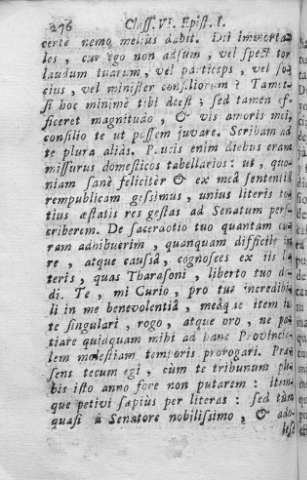 276 Class. VI. Epist. I.
certè nemo melius dabit. Dii immorta-
les, cur ego non adsum, vel spectator
laudum tuarum, vel particeps, vel so-
cius, vel minister consiliorum? Tamet-
si hoc minimè tibi deest; sed tamen ef-
ficeret magnitudo, & vis amoris mei,
consilio te ut possem juvare. Scribam ad
te plura aliàs. Paucis enim diebus eram
missurus domesticos tabellarios: ut, quo-
niam sanè felicitèr & ex meâ sententiâ
rempublicam gessimus, unius literis to-
tius æstatis res gestas ad Senatum pers-
criberem. De sacerdotio tuo quantam cu-
ram adhibuerim, quamquam difficili in
re, atque causâ, cognosces ex iis li-
teris, quas Thrasoni, liberto tuo de-
di. Te, mi Curio, pro tuâ incredibi-
li in me benevolentiâ, meâque item in
te singulari, rogo, atque oro, ne pa-
tiare quidquam mihi ad hanc Provincia-
lem molestiam temporis prorogari. Præ-
sens tecum egi, cùm te tribunum ple-
bis isto anno fore non putarem: item-
que petivi sæpiùs per literas: sed tùm
quasi à Senatore nobilissimo, & ado-